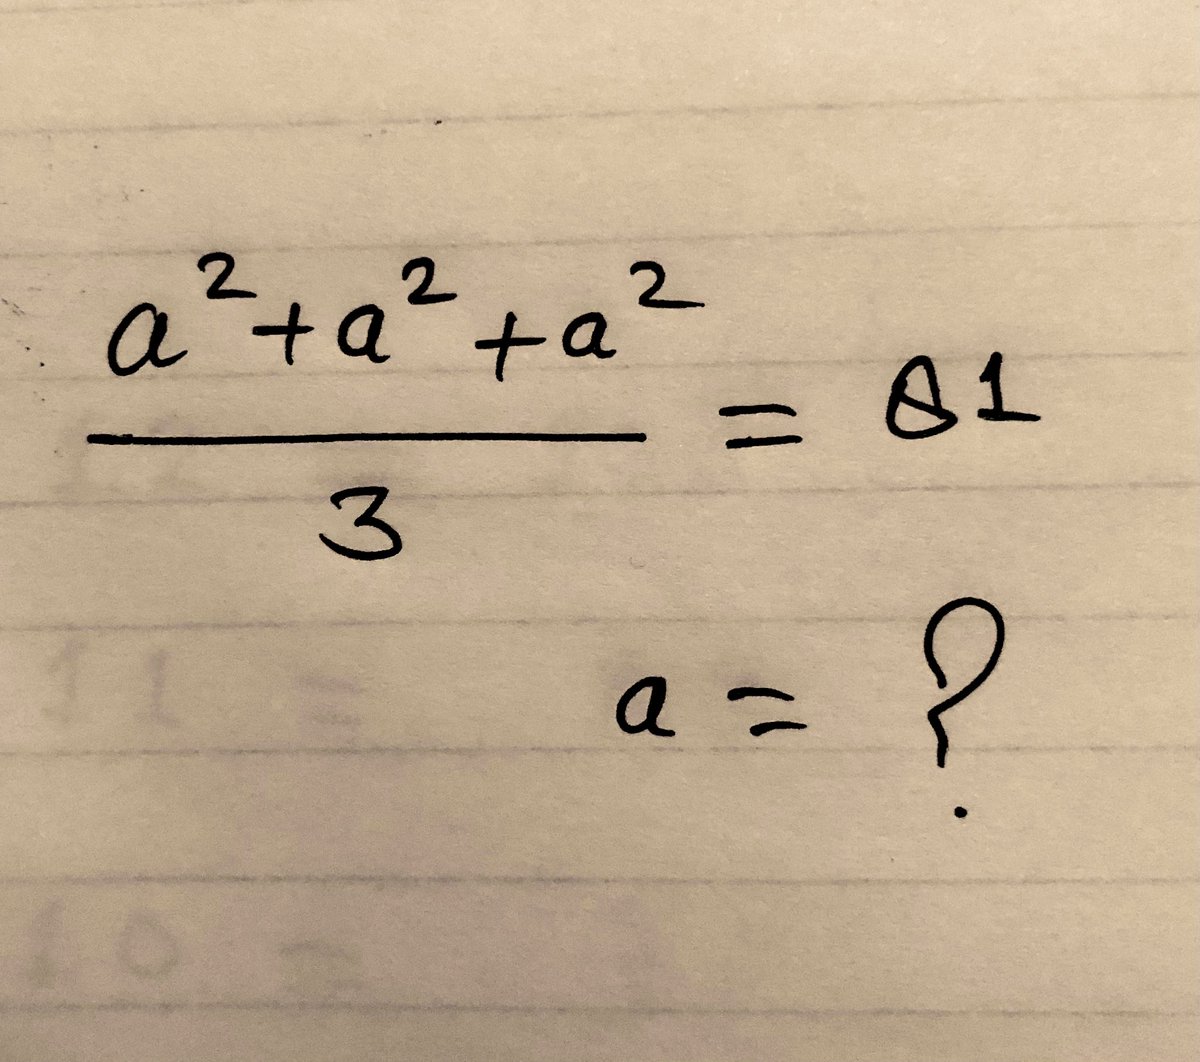 a²+a²+a²
3
= 81
a = ?